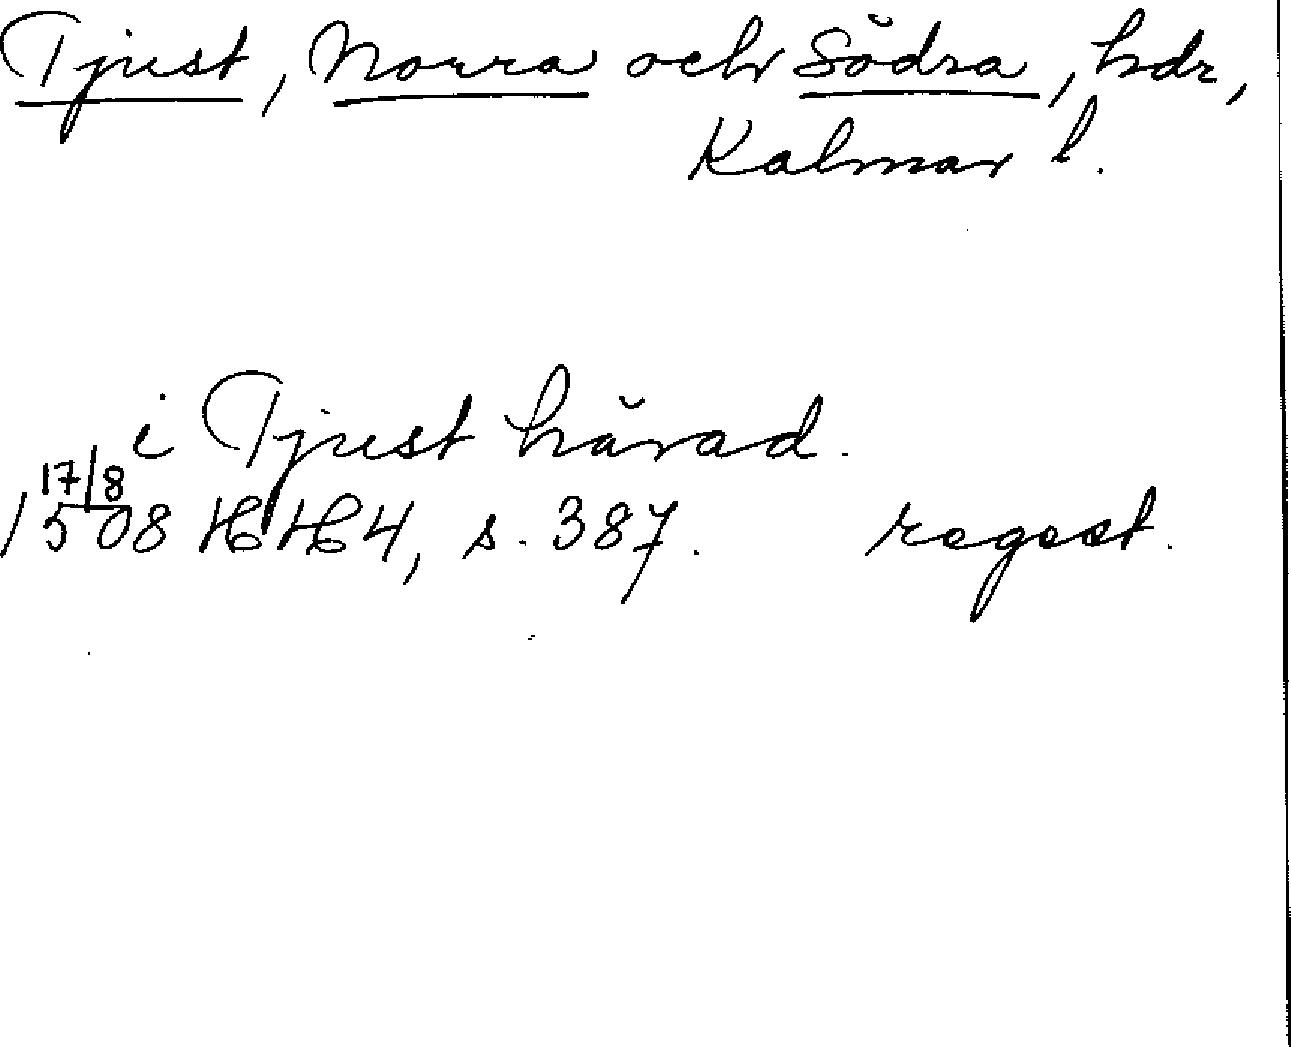 Tjust, Norra och Södra, hdr,
Kalmar l.
i Tjust härad.
17/8
1508 HH 4, s. 387. regest.